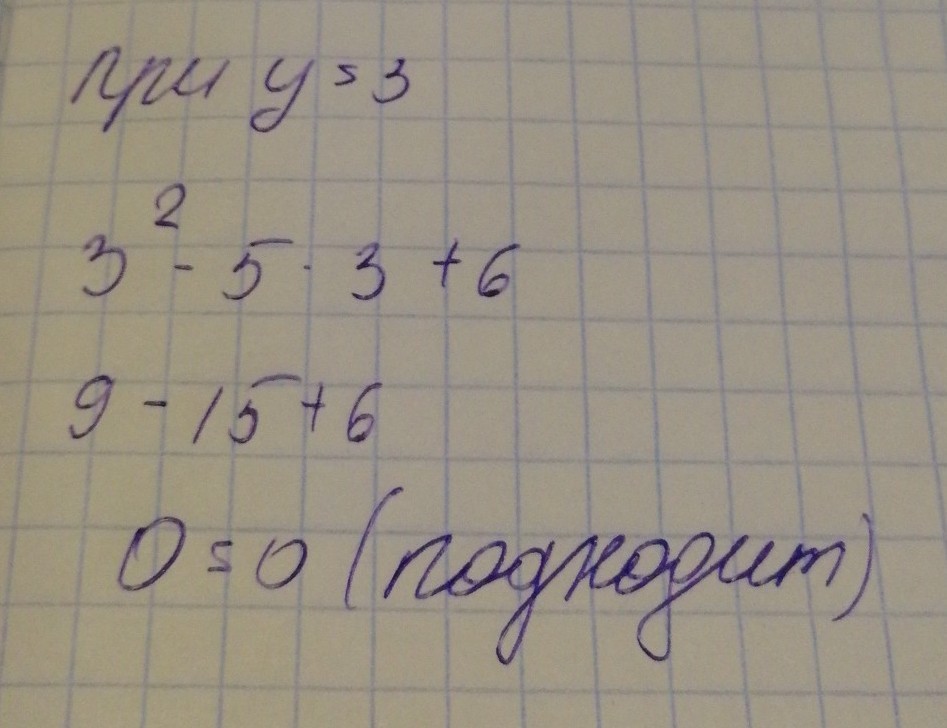 при y = 3
3² - 5 · 3 + 6
9 - 15 + 6
0 = 0 (подходит)